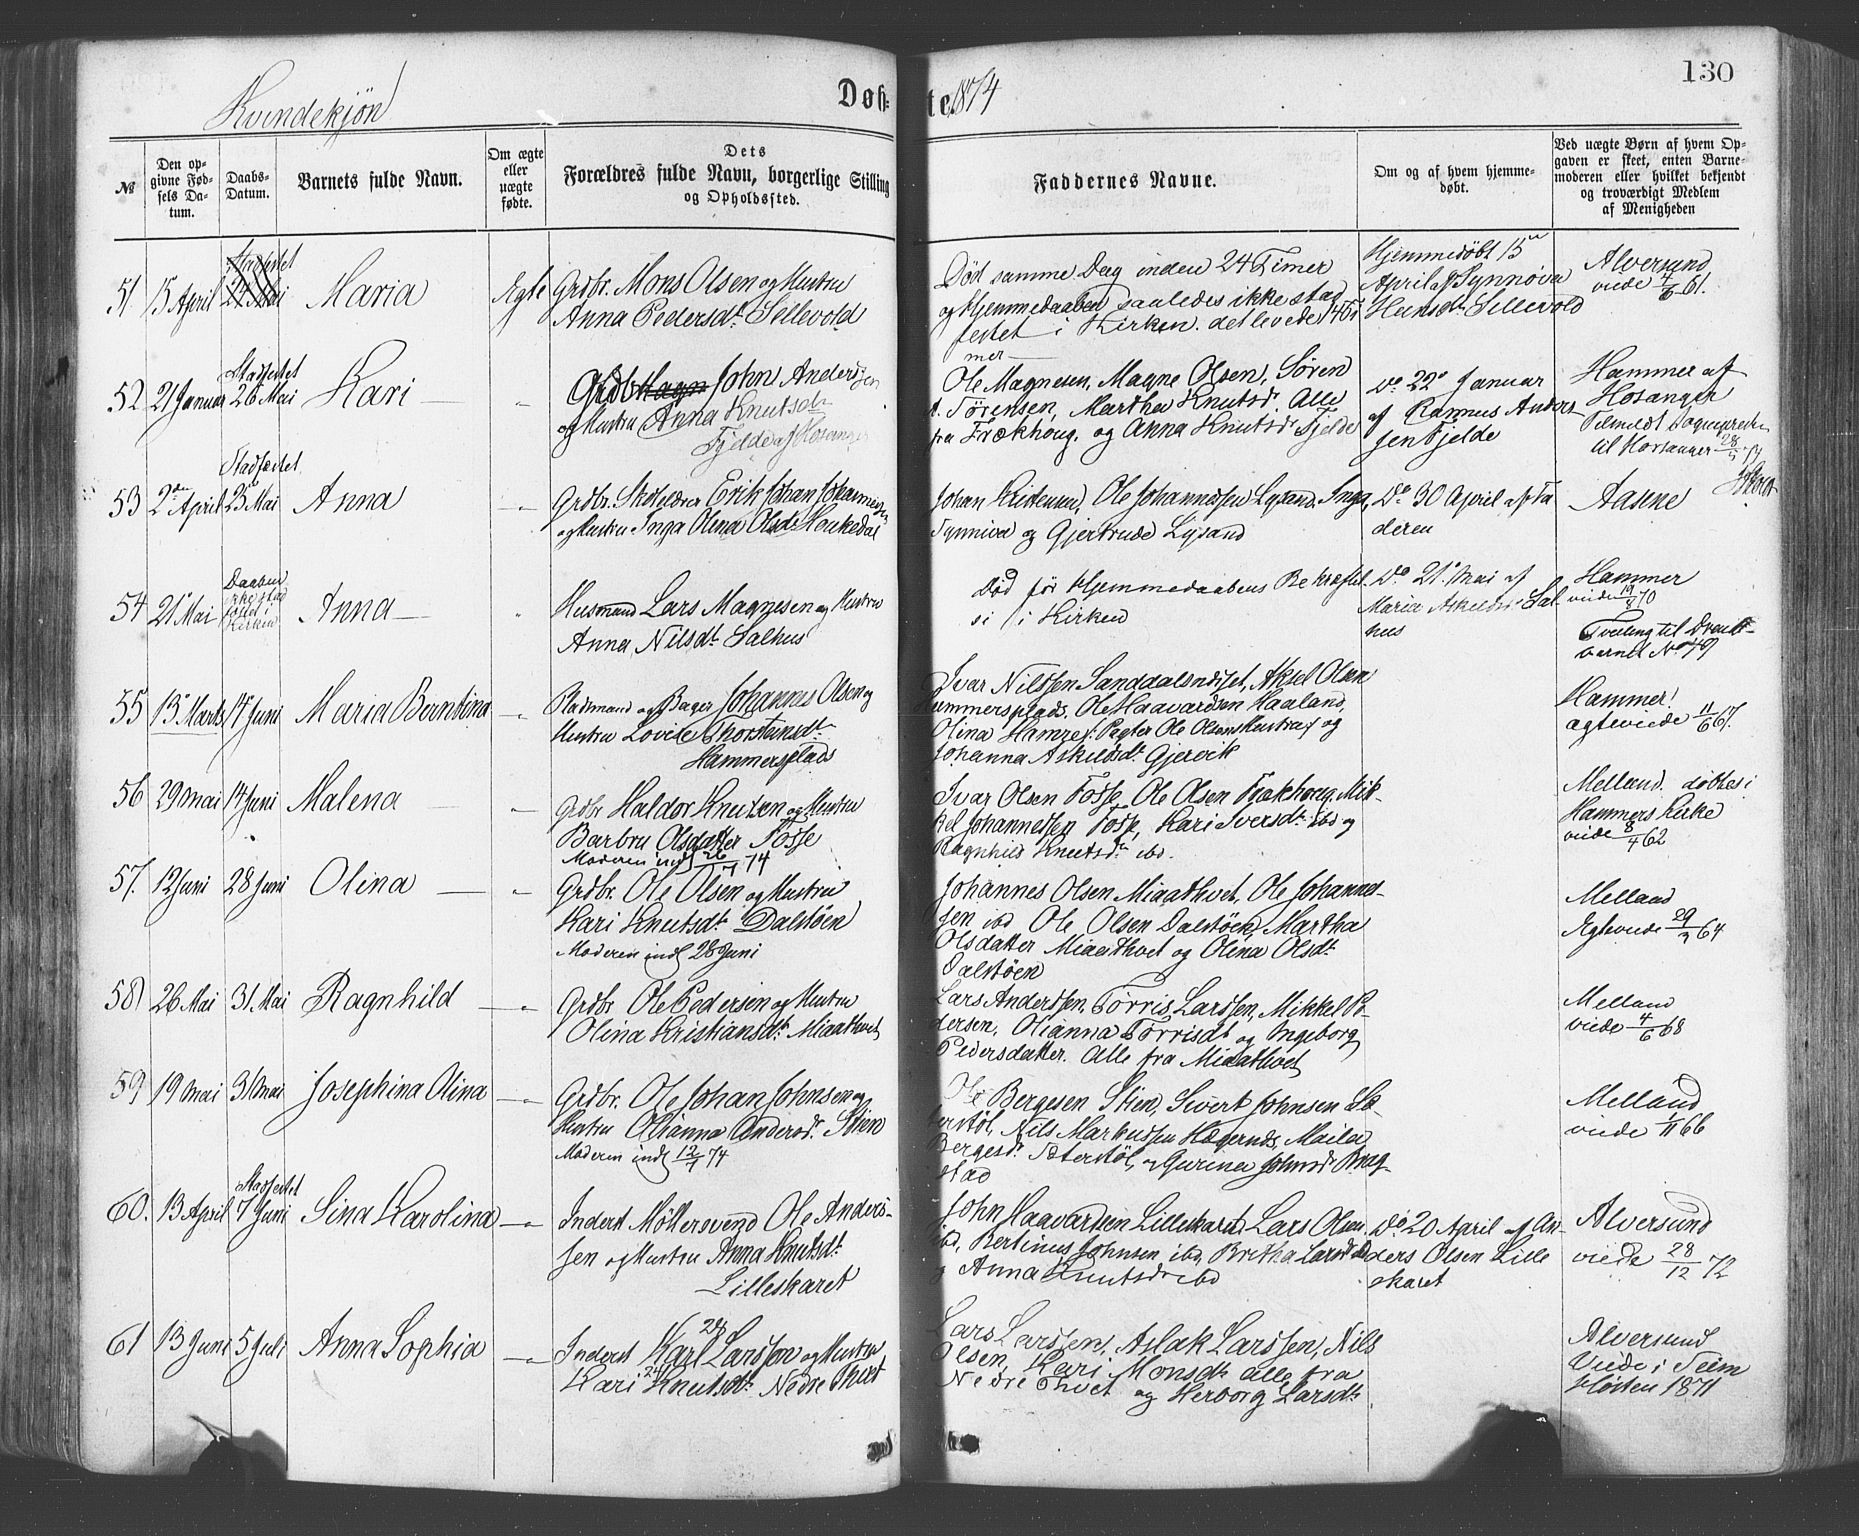 130
Kvindekjøn
Døb=
te. 1874
№
Den op-
givne Fød-
sels Da-
tum.
Daabs-
Datum.
Barnets fulde Navn.
Om ægte
eller
uægte
fødte.
Dets
Forældres fulde Navn, borgerlige Stilling
og Opholdssted.
Faddernes Navne.
Om og af hvem hjemme-
døbt.
Ved uægte Børn af hvem Op-
gaven er skeet, enten Barne-
moderen eller hvilket bekjendt
og troværdigt Medlem
af Menigheden
51. 15 April Stadfestet 24 Mai Maria Ægte
Grdbr. Mons Olsen og Hustru
Anna Pedersdt. Sellevold
Død samme Dag inden 24 Timer
og Hjemmedaaben saaledes ikke stad
festet i Kirken. det levede 14 Ti
mer
Hjemmedøbt 15
April af Synnøva
Hansdt. Sellevold
Alversund
viede 7/6 61.
52. 21 Januar Stadfestet 26 Mai Kari "
Grdbr John Andersen
og Hustru Anna Knutsdt
Fjelde af Hosanger
Ole Magnesen, Magne Olsen, Sören
A. Törensen, Martha Knutsd. Alle
fra Frækhoug. og Anna Knutsdr Fjelde
Do 22 Januar
af Rasmus Anders
sen Fjelde
Hammer af
Hosanger
Tilmeldt Sognepresten
til Hosanger 28/5 74
53 2 April Stadfæstet 25 Mai Anna "
Grdbr. Skolelærer Erik Johan Johannessen
og Hustru Inga Olina Olsdt Houkedal
Johan Kristensen, Ole Johannessen Lysand, Inga,
Synniva og Gjertrude Lysand
Do 30 April af Fa
deren
Aasene
54 21 Mai Daaben ikke stad
festet i
Kirken Anna "
Husmand Lars Magnesen og Hustru
Anna Nilsdt. Salhus
Død før Hjemmedaabens Bekræftel
se i Kirken
Do 21 Mai af
Maria Askildsdt. Sal
hus
Hammer
viede 19/8 70
Tvilling til Drenge-
barnet No 49
55 13 Marts 14 Juni Maria Berntina "
Pladsmand og Bager Johannes Olsen og
Hustru Lovise Thorsteinsdt.
Hammersplads
Ivar Nilssen Sanddalsndset, Aksel Olsen
Hammersplads. Ole Haavardsen Haaland,
Olina Hamre, Pagter Ole Olsens Hustru og
Johanna Askildsdt. Gjervik
Hammer!
ægteviede 11/6 67.
56 29 Mai 14 Juni Malena "
Grdbr Haldor Knutsen og Hustru
Barbru Olsdatter Fosse
Moderen indl 26/7 74
Ivar Olsen Fosse, Ole Olsen Frækhoug, Mik-
kel Johannessen Fosse, Kari Iversdt. ibd og
Ragnhild Knutsdr. ibd.
Melland. døbtes i
Hammers Kirke
viede 8/4 62
57. 12 Juni 28 Juni Olina "
Grdbr. Ole Olsen og Hustru
Kari Knutsdt. Dalstøen
Moderen indl 28 Juni
Johannes Olsen Miaathvet, Ole Johannes-
sen ibd Ole Olsen Dalstöen, Martha
Olsdatter Miaathvet og Olina Olsdt.
Dalstöen
Melland
Ægteviede 29/3 64
58) 26 Mai 31 Mai Ragnhild "
Grdbr Ole Pedersen og Hustru
Olina Kristiansdt. Miaathvet
Lars Anderssen, Törris Larssen, Mikkel Pe-
dersen, Olianna Törrisdt og Ingeborg
Pedersdatter. Alle fra Miaathvet
Melland
viede 4/6 68
59 19 Mai 31 Mai Josephina Olina "
Grdbr. Ole Johan Johnsen og
Hustru Olianna Andersdr. Stien
Moderen indl 12/7 74
Ole Bergesen Stien, Sivert Johnsen Sæ-
terstöl, Nils Markussen Hægernds, Maila
Bergesd. Sæterstöl, og Gurina Johnsdr Brag-
stad
Melland
viede /11 66
60. 13 April Stadfestet 7 Juni Sina Karolina "
Inderst Möllersvend Ole Anders-
sen og Hustru Anna Knutsdt.
Lilleskaret
John Haavardsen Lilleskaret, Lars Olsen
ibd, Bertinus Johnsen ibd, Bretha Larsdt ibd
og Anna Knutsdr ibd
Do 20 April af An-
ders Olsen Lille
skaret
Alversund
viede 28/12 72
61 13 Juni 5 Juli Anna Sophia "
28
Inderst Karl Larssen og Hustru
Kari 24 Knutsdt. Nedre Thvet
Lars Larssen, Aslak Larssen, Nils
Olsen, Kari Monsdt. alle fra
Nedre Thvet og Herborg Larsdt.
Alversund
Viede i Seim
Høsten 1871